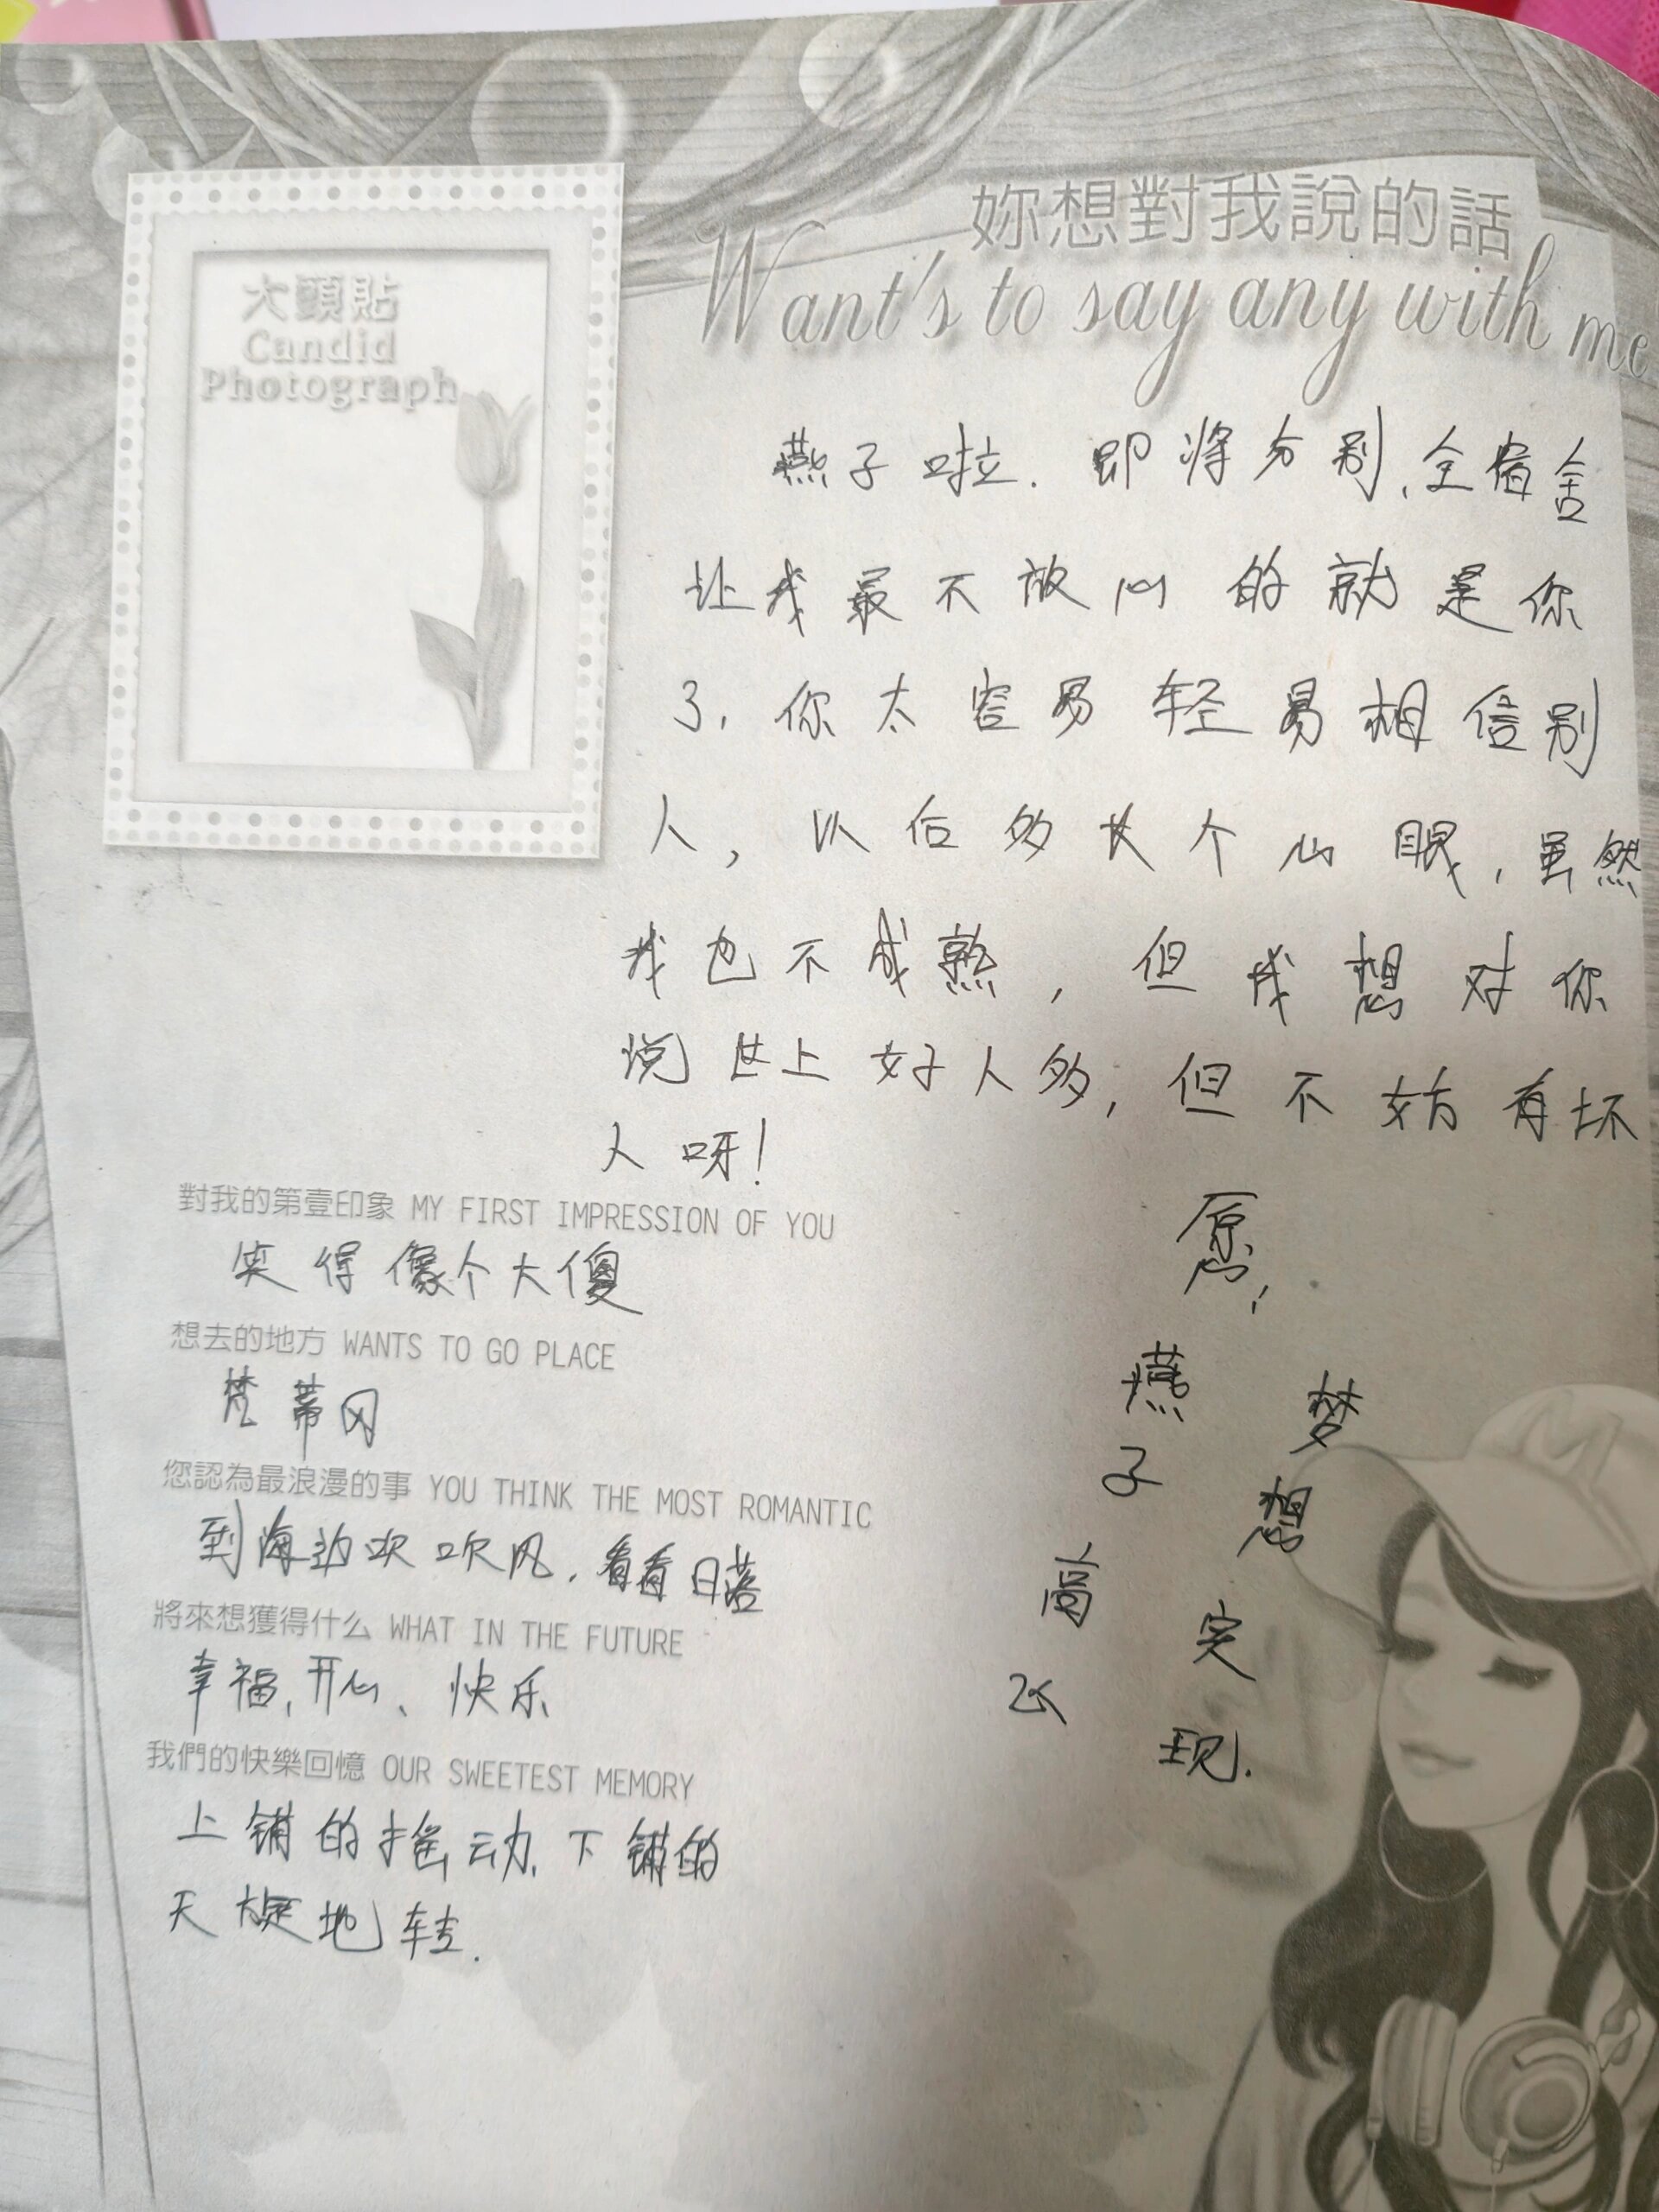 大頭貼
Candid
Photograph
妳想對我說的話
Want's to say any with me
燕子啦.即将分别,全宿舍
让我最不放心的就是你
了,你太容易轻易相信别
人,以后多长个心眼,虽然
我也不成熟,但我想对你
说世上好人多,但不妨有坏
人呀!
對我的第壹印象 MY FIRST IMPRESSION OF YOU
笑得像个大傻
想去的地方 WANTS TO GO PLACE
梵蒂冈
您認為最浪漫的事 YOU THINK THE MOST ROMANTIC
到海边吹吹风,看看日落
將來想獲得什么 WHAT IN THE FUTURE
幸福,开心、快乐
我們的快樂回憶 OUR SWEETEST MEMORY
上铺的摇动,下铺的
天旋地转.
愿,
燕子高飞
梦想实现.